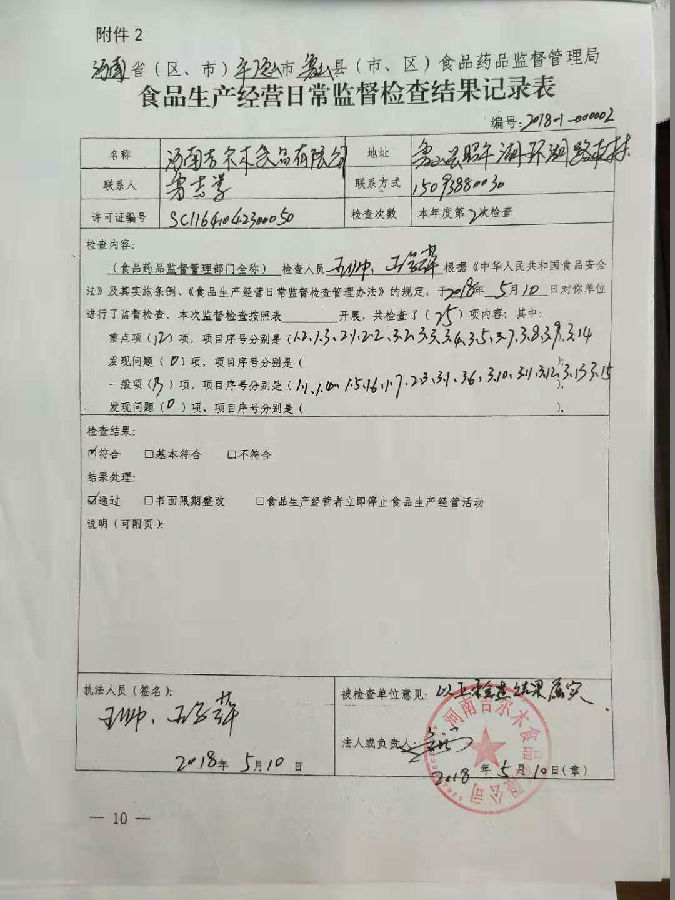 附件2
河南省(区、市)平顶山市鲁山县(市、区)食品药品监督管理局
食品生产经营日常监督检查结果记录表
编号:2018-1-000002
名称 河南吉尔木食品有限公司 地址 鲁山县昭平湖环湖路
联系人 联系方式 15093880030
许可证编号 SC11641042300050 检查次数 本年度第2次检查
检查内容:
(食品药品监督管理部门全称)检查人员 根据《中华人民共和国食品安全
法》及其实施条例、《食品生产经营日常监督检查管理办法》的规定,于2018年5月10日对你单位
进行了监督检查。本次监督检查按照表______开展,共检查了(25)项内容;其中:
重点项(12)项,项目序号分别是(1.2、1.3、2.1、2.2、3.2、3.3、3.4、3.5、3.7、3.8、3.9、3.14
发现问题(0)项,项目序号分别是( ).
一般项(13)项,项目序号分别是(1.1、1.4、1.5、1.6、1.7、2.3、3.1、3.6、3.10、3.11、3.12、3.13、3.15
发现问题(0)项,项目序号分别是( ).
检查结果:
☑符合 □基本符合 □不符合
结果处理:
☑通过 □书面限期整改 □食品生产经营者立即停止食品生产经营活动
说明(可附页):
执法人员(签名): 被检查单位意见:以上检查结果属实.
法人或负责人:
2018年5月10日 2018年5月10日(章)
河南吉尔木食品有限公司
— 10 —